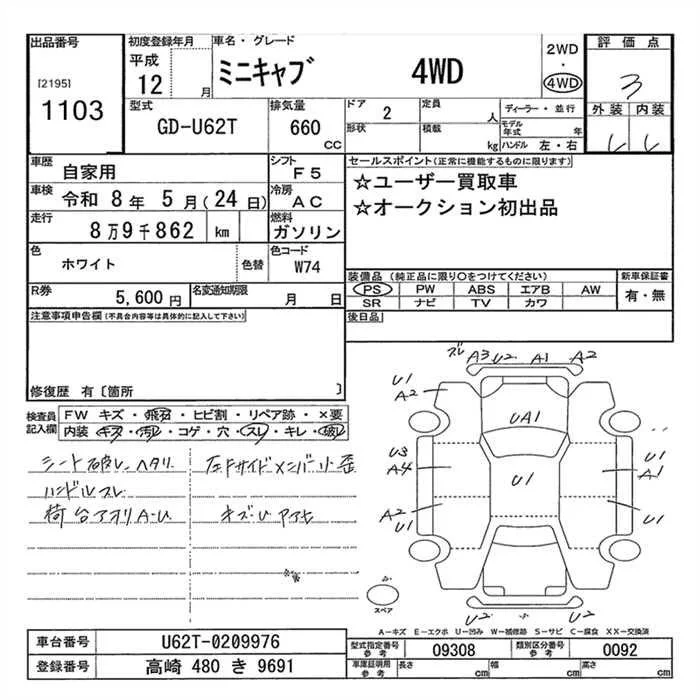 出品番号
[2195]
1103
初度登録年月
平成
12 月
車名・グレード
ミニキャブ 4WD
2WD
・
4WD
評価点
3
外装 内装
型式
GD-U62T
排気量
660 CC
ドア 2
形状
定員 人
積載 kg
ディーラー・並行
モデル年式 年
ハンドル 左・右
車歴 自家用
シフト F5
車検 令和 8年 5月(24日)
冷房 AC
走行 8万9千862 km
燃料 ガソリン
色 ホワイト 色替
色コード W74
R券 5,600円
名変通知期限 月 日
セールスポイント(正常に機能するものに限ります)
☆ユーザー買取車
☆オークション初出品
装備品(純正品に限り〇をつけてください)
PS PW ABS エアB AW
SR ナビ TV カワ
新車保証書
有・無
後日品
注意事項申告欄(不具合内容等は具体的に記入して下さい)
修復歴 有〔箇所 〕
検査員記入欄
FW キズ・飛石・ヒビ割・リペア跡・×要
内装 キズ・汚レ・コゲ・穴・スレ・キレ・破レ
シート破レ、ヘタリ
ハンドルスレ
荷台アオリA・U
左Fサイドメンバー小歪
キズU
ズレ A3 U2 A1 A2
U1
A2
UA1
U3
A4
U1
U1
A1
A2
U1
U1
U2 U2
スペア
A-キズ E-エクボ U-凹み W-補修跡 S-サビ C-腐食 XX-交換済
車台番号 U62T-0209976
登録番号 高崎 480 き 9691
型式指定番号 参考 09308
類別区分番号 参考 0092
車庫証明用 参考 長さ cm 幅 cm 高さ cm